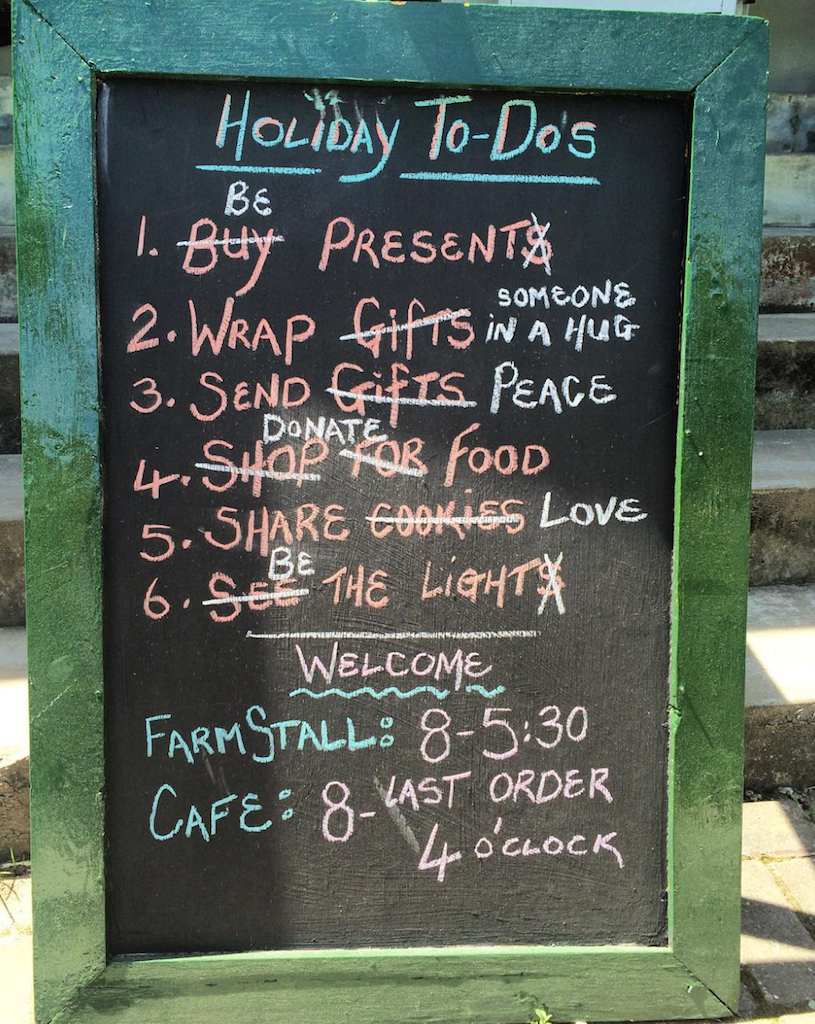 HOLIDAY TO-DO'S
BE
1. BUY PRESENTS
SOMEONE
2. WRAP GIFTS IN A HUG
3. SEND GIFTS PEACE
DONATE
4. SHOP FOR FOOD
5. SHARE COOKIES LOVE
BE
6. SEE THE LIGHTS
WELCOME
FARMSTALL: 8-5:30
CAFE: 8-LAST ORDER
4 O'CLOCK